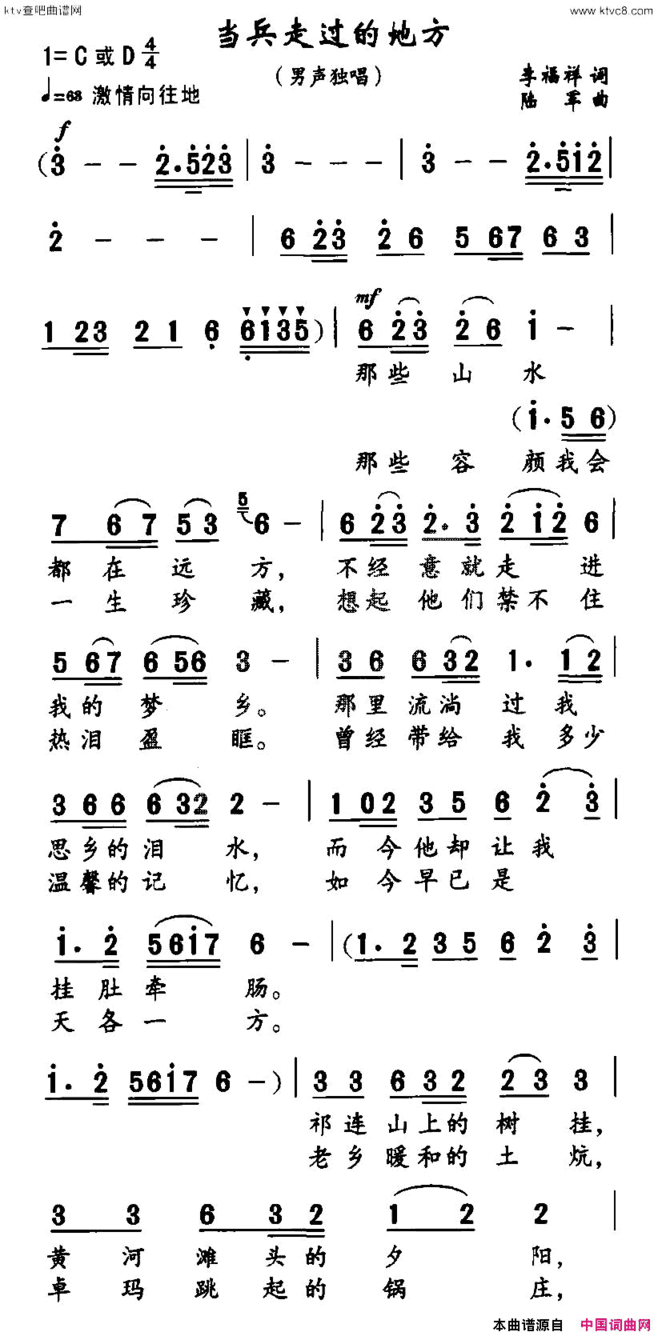 ktv查吧曲谱网
www.ktvc8.com
当兵走过的地方
1=C或D 4/4
（男声独唱）
李福祥 词
♩=68 激情向往地
陆军 曲
f
(3 - - 2·523 | 3 - - - | 3 - - 2·512 |
2 - - - | 6 23 26 567 63 |
mf
1 23 21 6 6135) | 6 23 26 1 - |
那些山水
(1·56)
那些容颜我会
7 67 53 5 6 - | 6 23 2·3 212 6 |
都在远方，不经意就走进
一生珍藏，想起他们禁不住
5 67 656 3 - | 36 632 1· 12 |
我的梦乡。那里流淌过我
热泪盈眶。曾经带给我多少
366 632 2 - | 102 35 6 2 3 |
思乡的泪水，而今他却让我
温馨的记忆，如今早已是
1·2 5617 6 - | (1·2 35 6 2 3 |
挂肚牵肠。
天各一方。
1·2 5617 6 -) | 33 632 23 3 |
祁连山上的树挂，
老乡暖和的土炕，
3 3 6 32 1 2 2 |
黄河滩头的夕阳，
卓玛跳起的锅庄，
本曲谱源自 中国词曲网